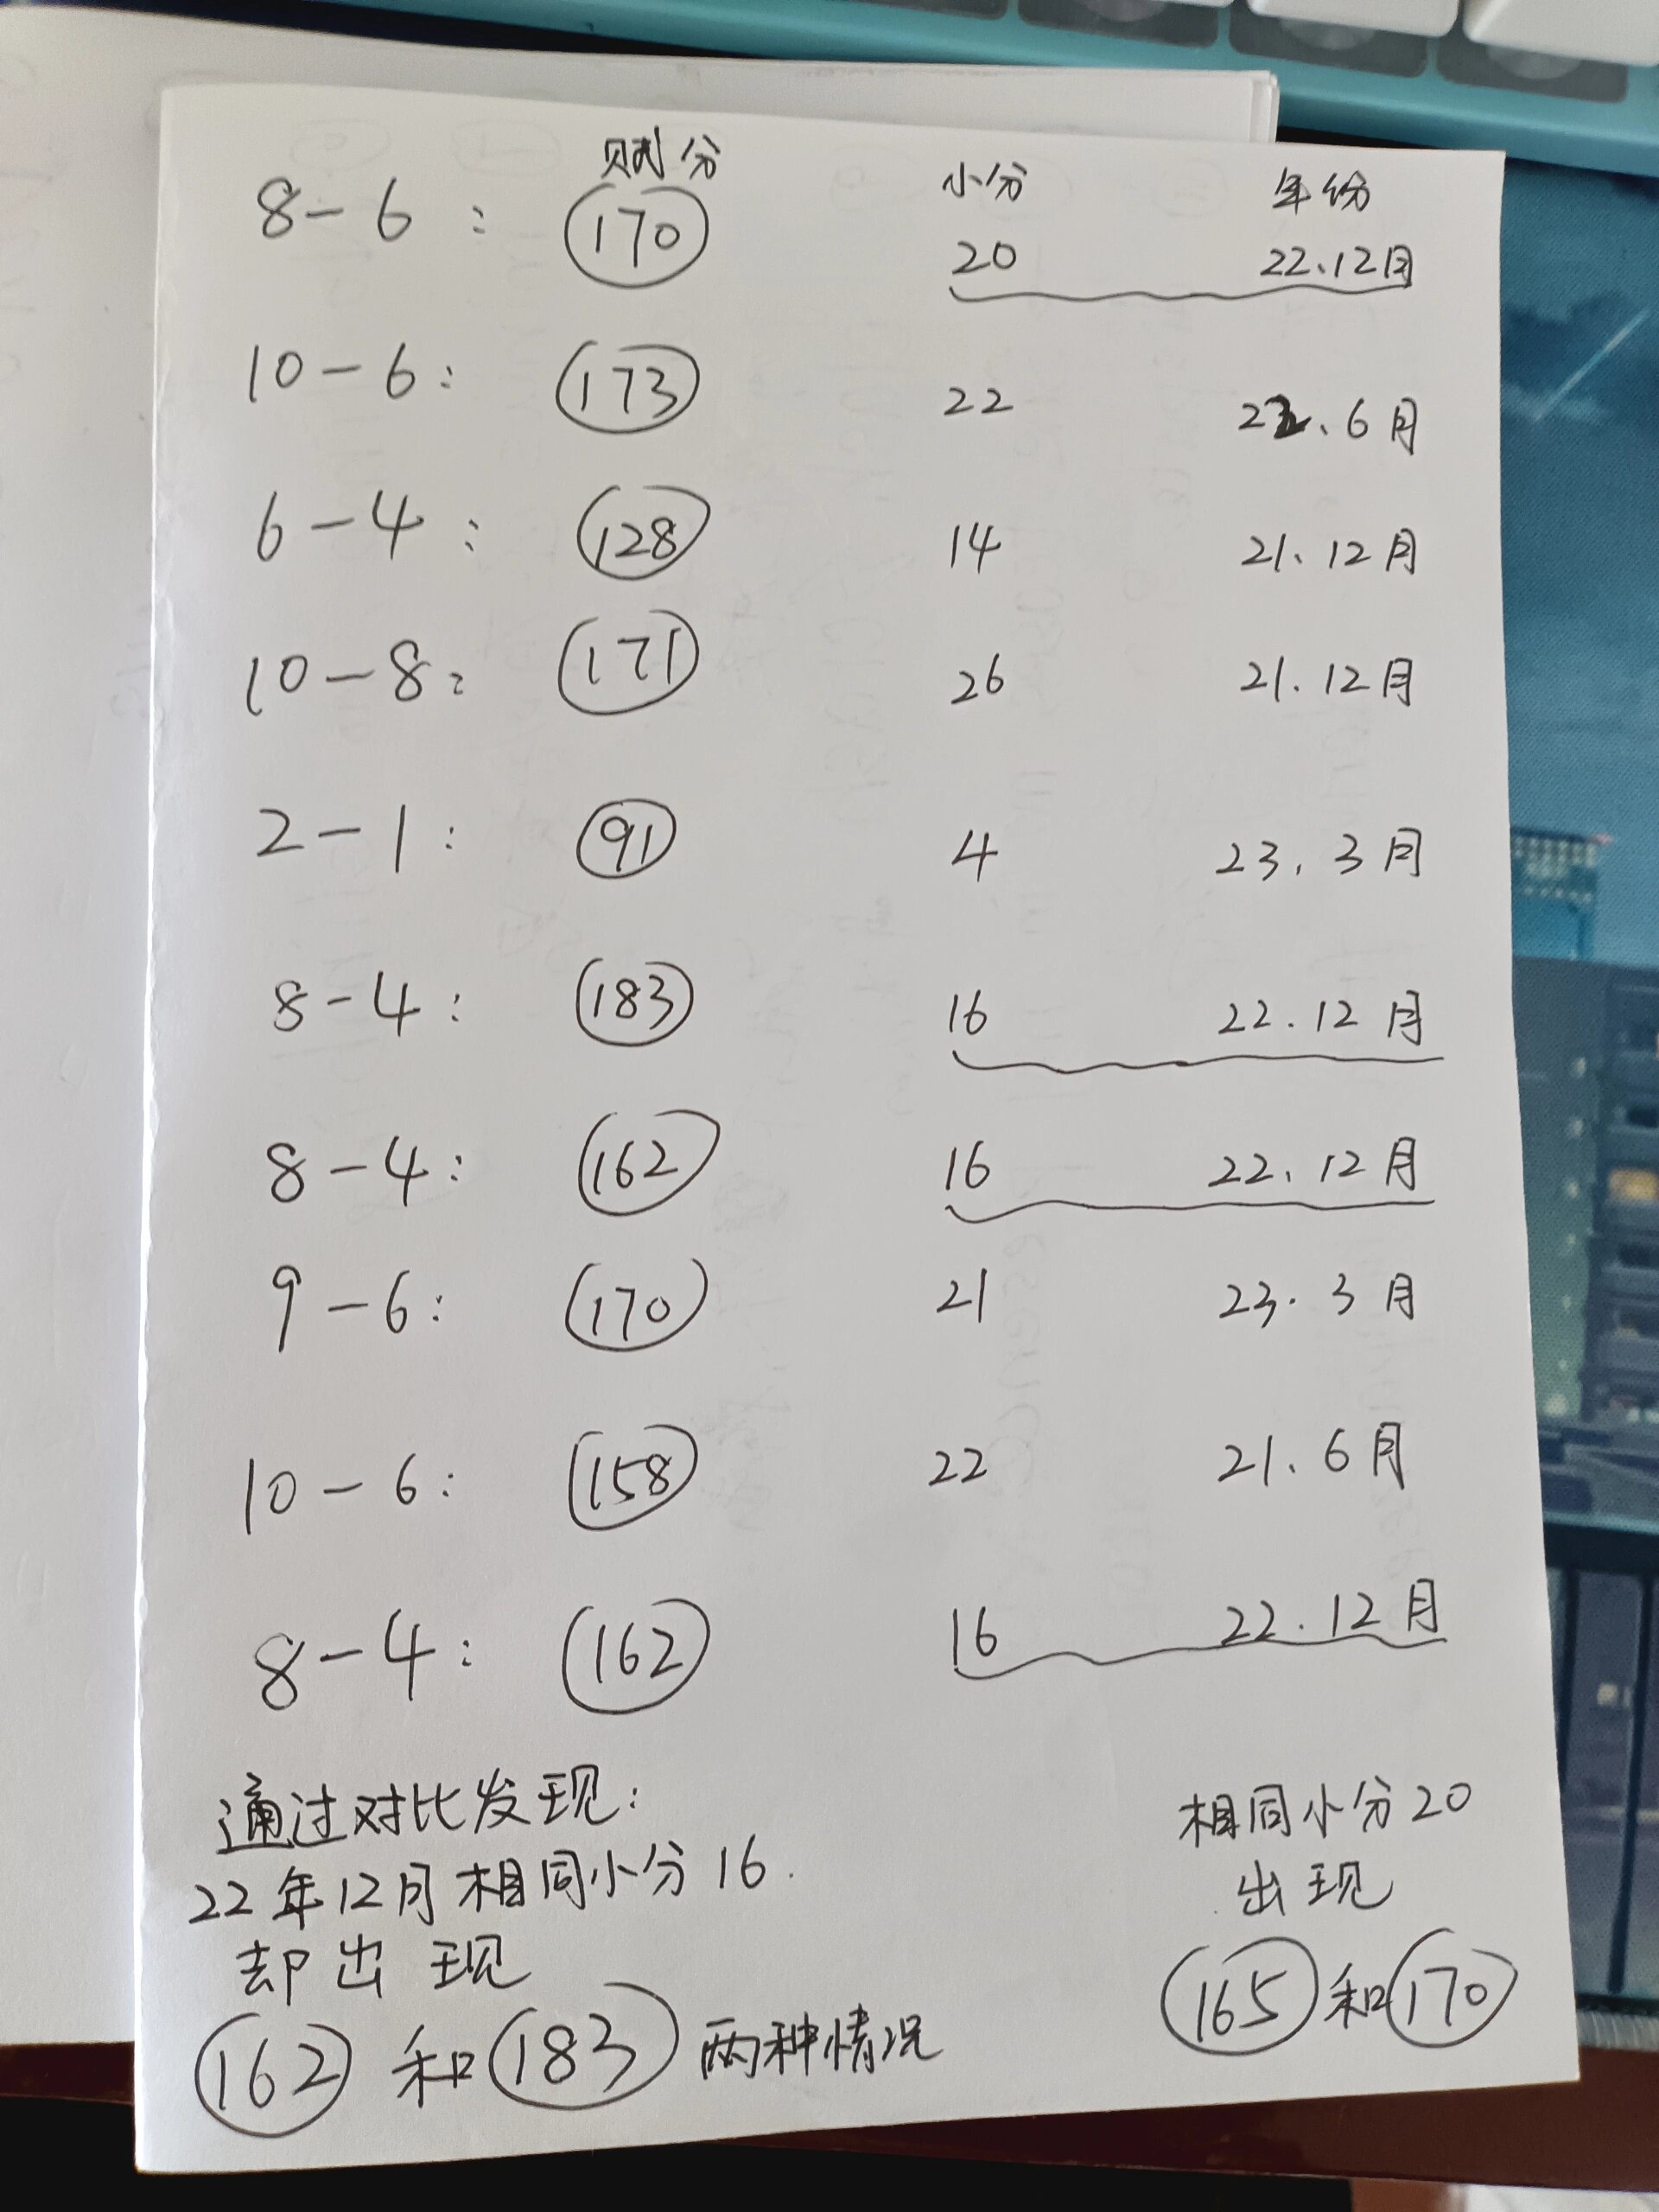 赋分 小分 年份
8-6: 170 20 22.12月
10-6: 173 22 22.6月
6-4: 128 14 21.12月
10-8: 171 26 21.12月
2-1: 91 4 23.3月
8-4: 183 16 22.12月
8-4: 162 16 22.12月
9-6: 170 21 23.3月
10-6: 158 22 21.6月
8-4: 162 16 22.12月
通过对比发现:
22年12月相同小分16.
却出现
162和183两种情况
相同小分20
出现
165和170